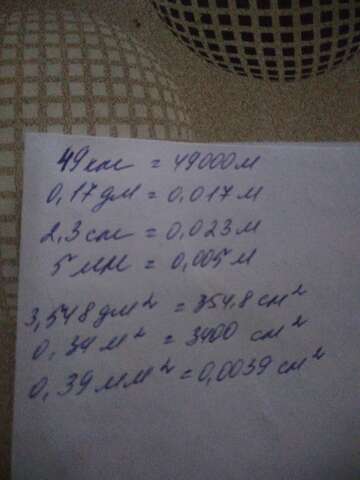 49 км = 49000 м
0,17 дм = 0,017 м
2,3 см = 0,023 м
5 мм = 0,005 м
3,548 дм² = 354,8 см²
0,34 м² = 3400 см²
0,39 мм² = 0,0039 см²